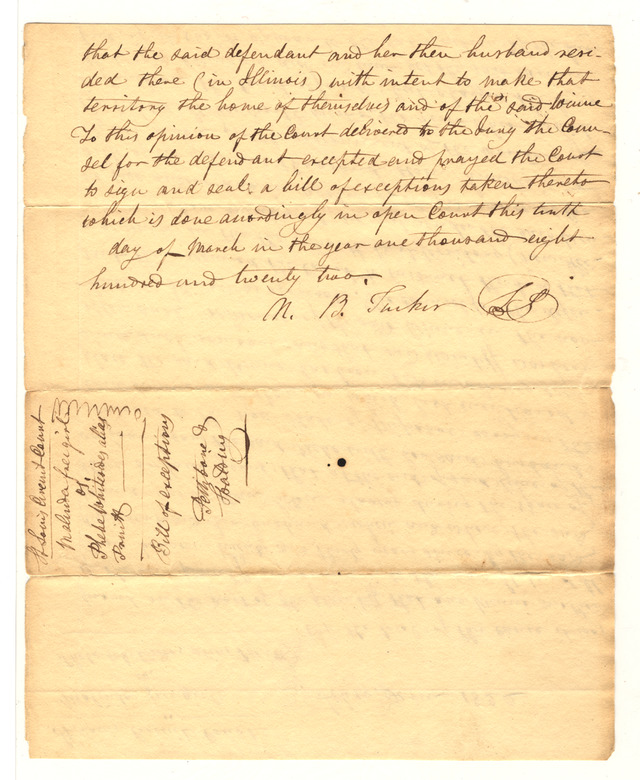 that the said defendant and her then husband resi-
ded there (in Illinois) with intent to make that
territory the home of themselves and of the said Winne
To this opinion of the Court delivered to the Jury the Coun-
sel for the defendant excepted and prayed the Court
to sign and seal a bill of exceptions taken thereto
which is done accordingly in open Court this tenth
day of March in the year one thousand eight
hundred and twenty two.
N. B. Tucker LS
St Louis Circuit Court
Malinda free girl
vs
Phebe alias
Pruitt
Bill of exceptions
Pettibone &
Spalding